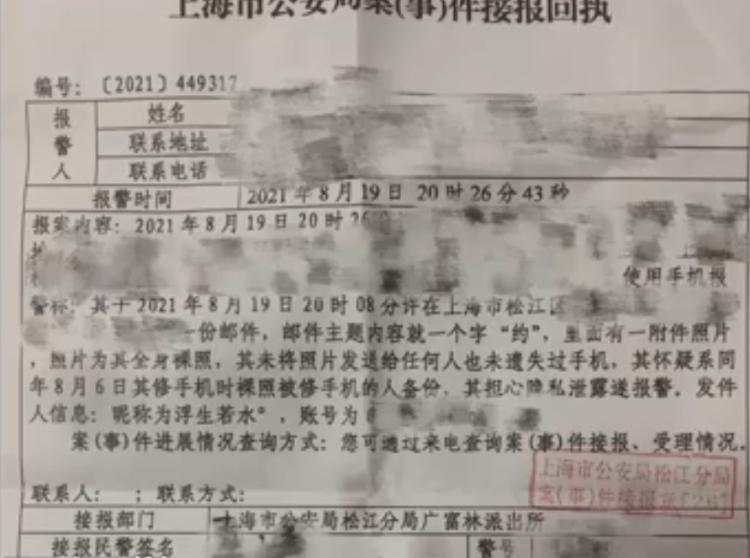 上海市公安局案(事)件接报回执
编号：〔2021〕449317
报警人
姓名
联系地址
联系电话
报警时间 2021年8月19日 20时26分43秒
报案内容：2021年8月19日20时26
使用手机报
警称：其于2021年8月19日20时08分许在上海市松江区
一份邮件，邮件主题内容就一个字“约”，里面有一附件照片
，照片为其全身裸照，其未将照片发送给任何人也未遗失过手机，其怀疑系同
年8月6日其修手机时裸照被修手机的人备份，其担心隐私泄露遂报警。发件
人信息：昵称为浮生若水°，账号为
案(事)件进展情况查询方式：您可通过来电查询案(事)件接报、受理情况.
上海市公安局松江分局
案(事)件接报
联系人： ；联系方式：
接报部门 上海市公安局松江分局广富林派出所
接报民警签名 警号